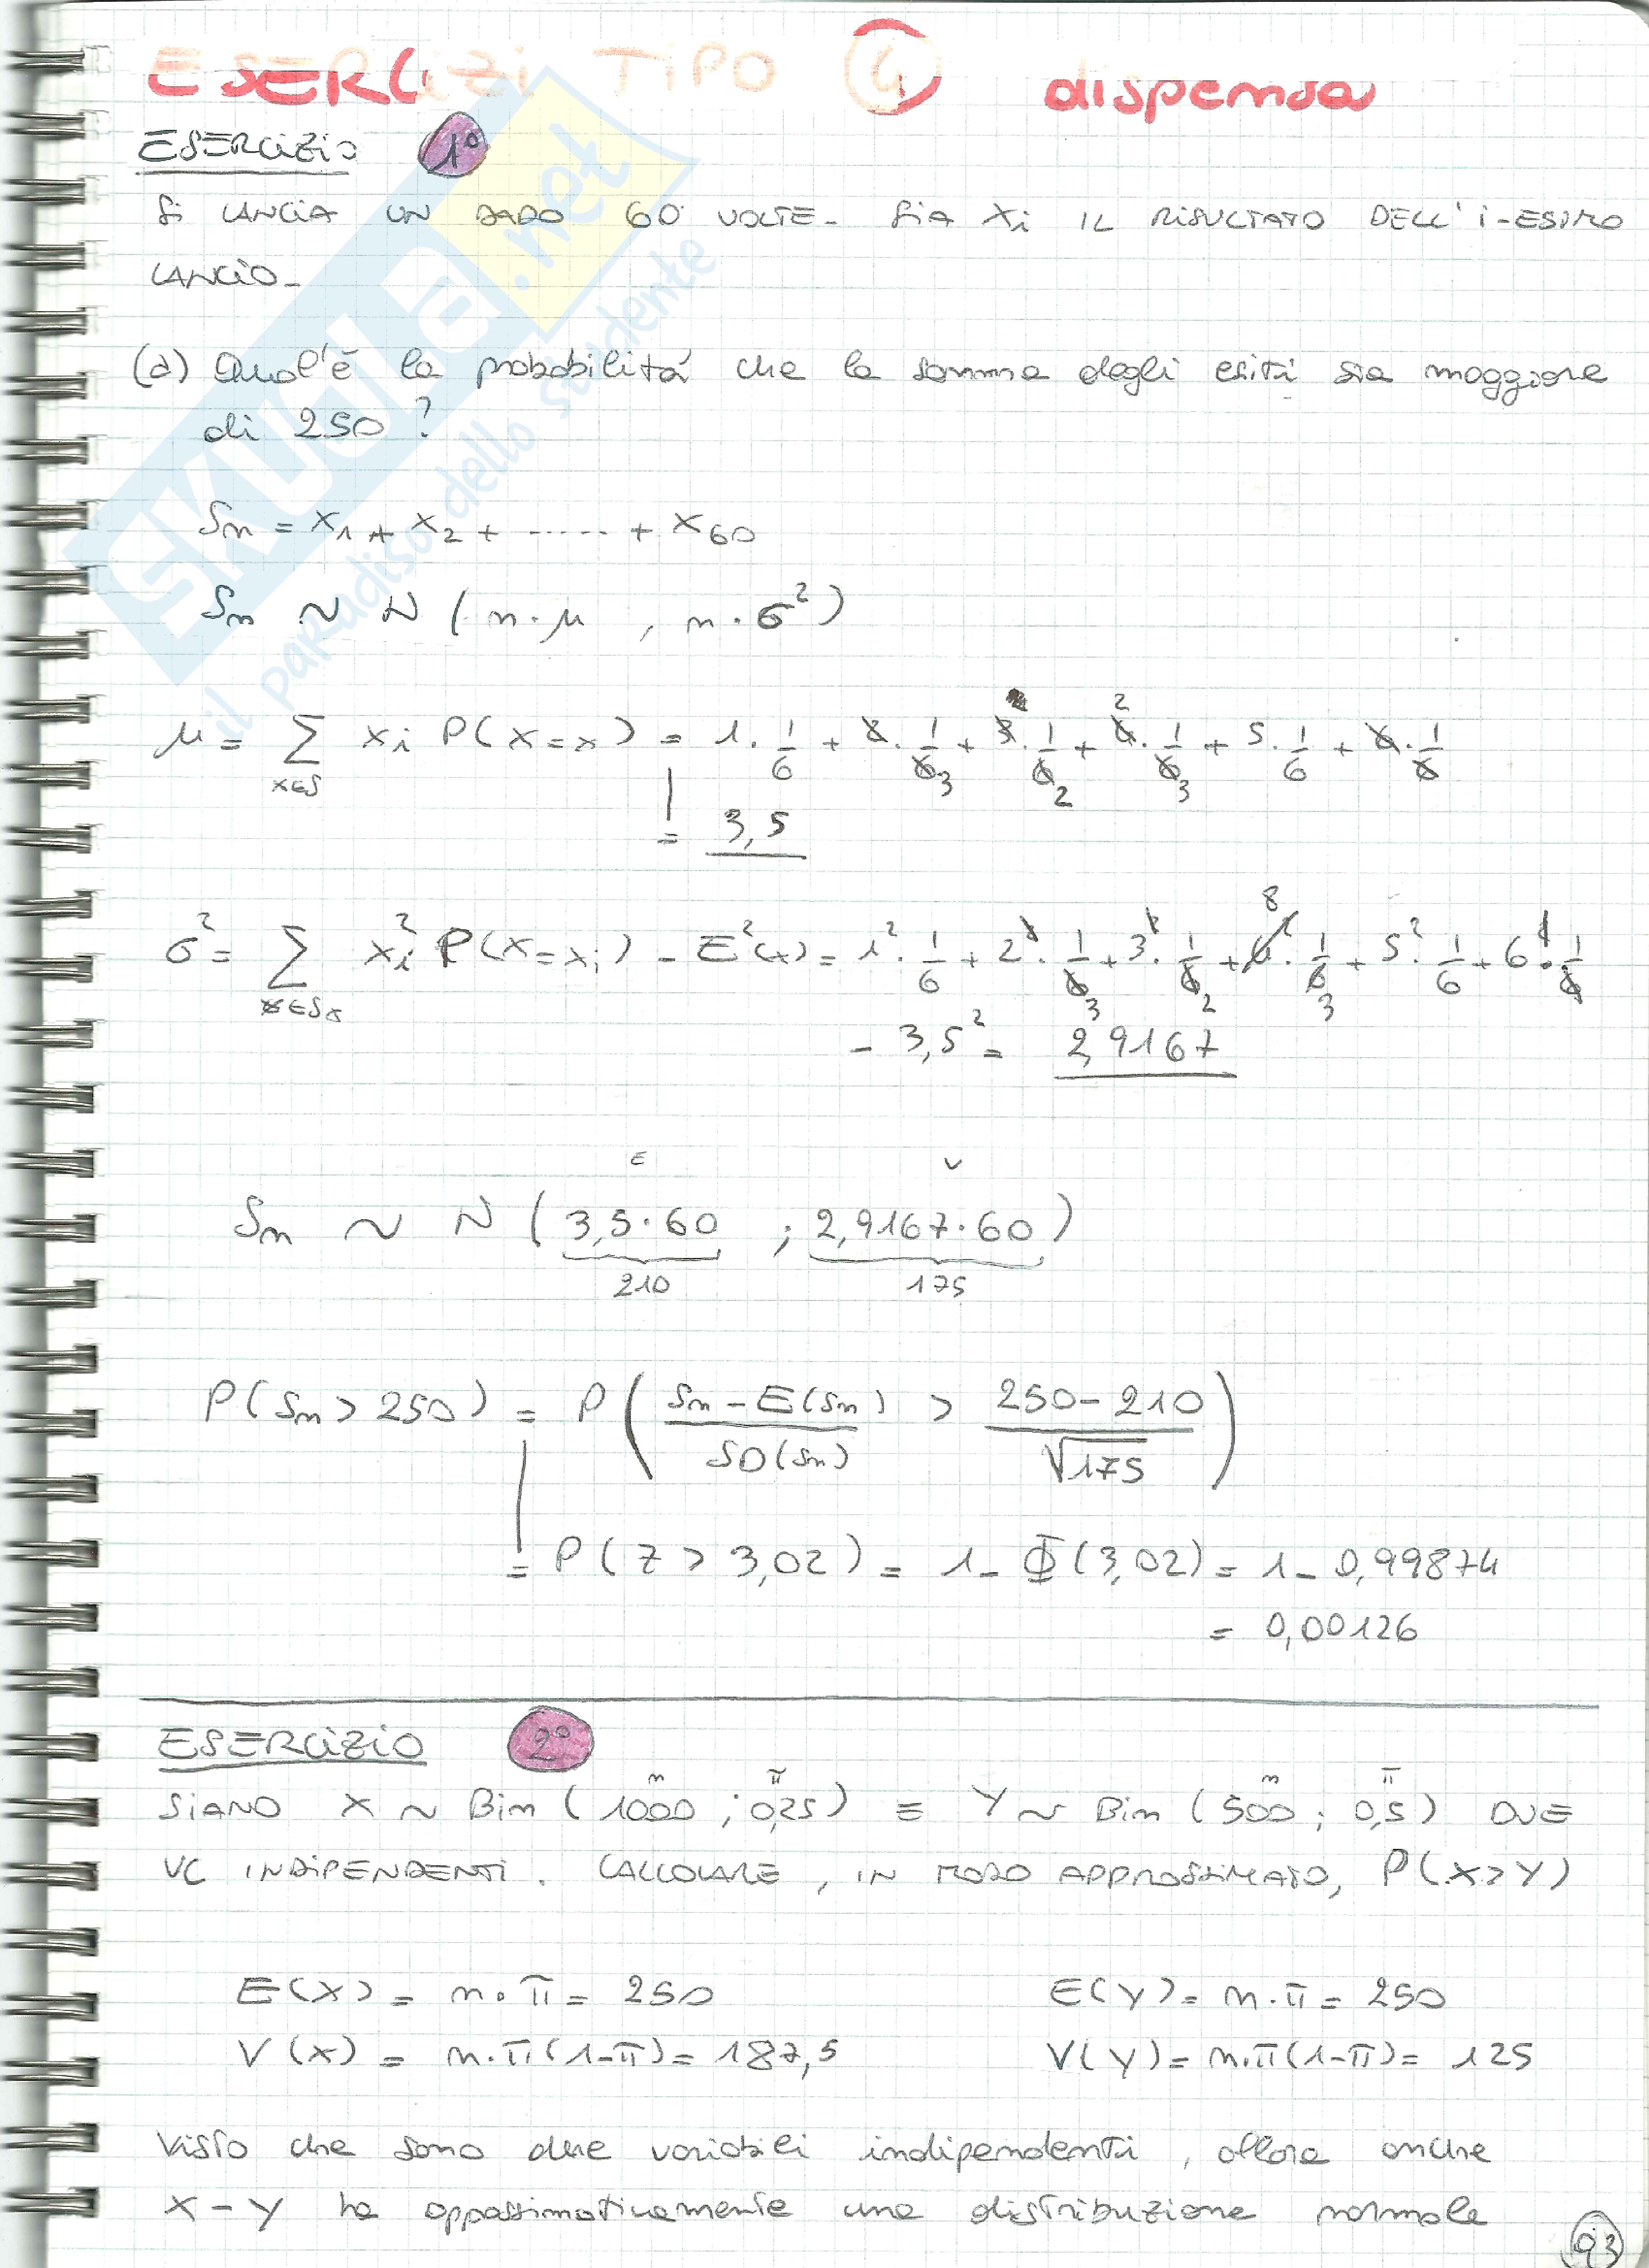 ESERCIZI TIPO 4 dispensa
ESERCIZIO 1°
SI LANCIA UN DADO 60 VOLTE. SIA Xi IL RISULTATO DELL'i-ESIMO
LANCIO.
(a) Qual'è la probabilitá che la somma degli esiti sia maggiore
di 250?
Sn = X1 + X2 + ...... + X60
Sn ~ N (n·μ, n·σ²)
μ = Σ xi P(X=x) = 1·1/6 + 2·1/6 + 3·1/6 + 4·1/6 + 5·1/6 + 6·1/6
x∈S
= 3,5
σ² = Σ xi² P(X=xi) - E²(x) = 1²·1/6 + 2²·1/6 + 3²·1/6 + 4²·1/6 + 5²·1/6 + 6²·1/6
x∈Sx
- 3,5² = 2,9167
E V
Sn ~ N (3,5·60 ; 2,9167·60)
210 175
P(Sn > 250) = P( (Sn - E(Sn))/SD(Sn) > (250-210)/√175 )
= P(Z > 3,02) = 1 - Φ(3,02) = 1 - 0,99874
= 0,00126
ESERCIZIO 2°
n π n π
SIANO X ~ Bin (1000 ; 0,25) E Y ~ Bin (500 ; 0,5) DUE
VC INDIPENDENTI. CALCOLARE, IN MODO APPROSSIMATO, P(X>Y)
E(X) = n·π = 250 E(Y) = n·π = 250
V(X) = n·π(1-π) = 187,5 V(Y) = n·π(1-π) = 125
Visto che sono due variabili indipendenti, allora anche
X - Y ha appossimativamente una distribuzione normale
93
SKUOLA.net
il paradiso dello studente